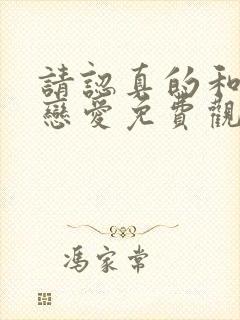 請認真的和
戀愛免費觀
馮家常